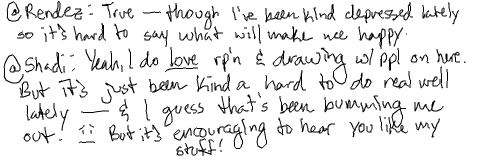 @Rendez: True — though I've been kind depressed lately
so it's hard to say what will make me happy.
@Shadi: Yeah, I do love rp'n & drawing w/ ppl on here.
But it's just been kind a hard to do real well
lately — & I guess that's been bumming me
out! But it's encouraging to hear you like my
stuff!